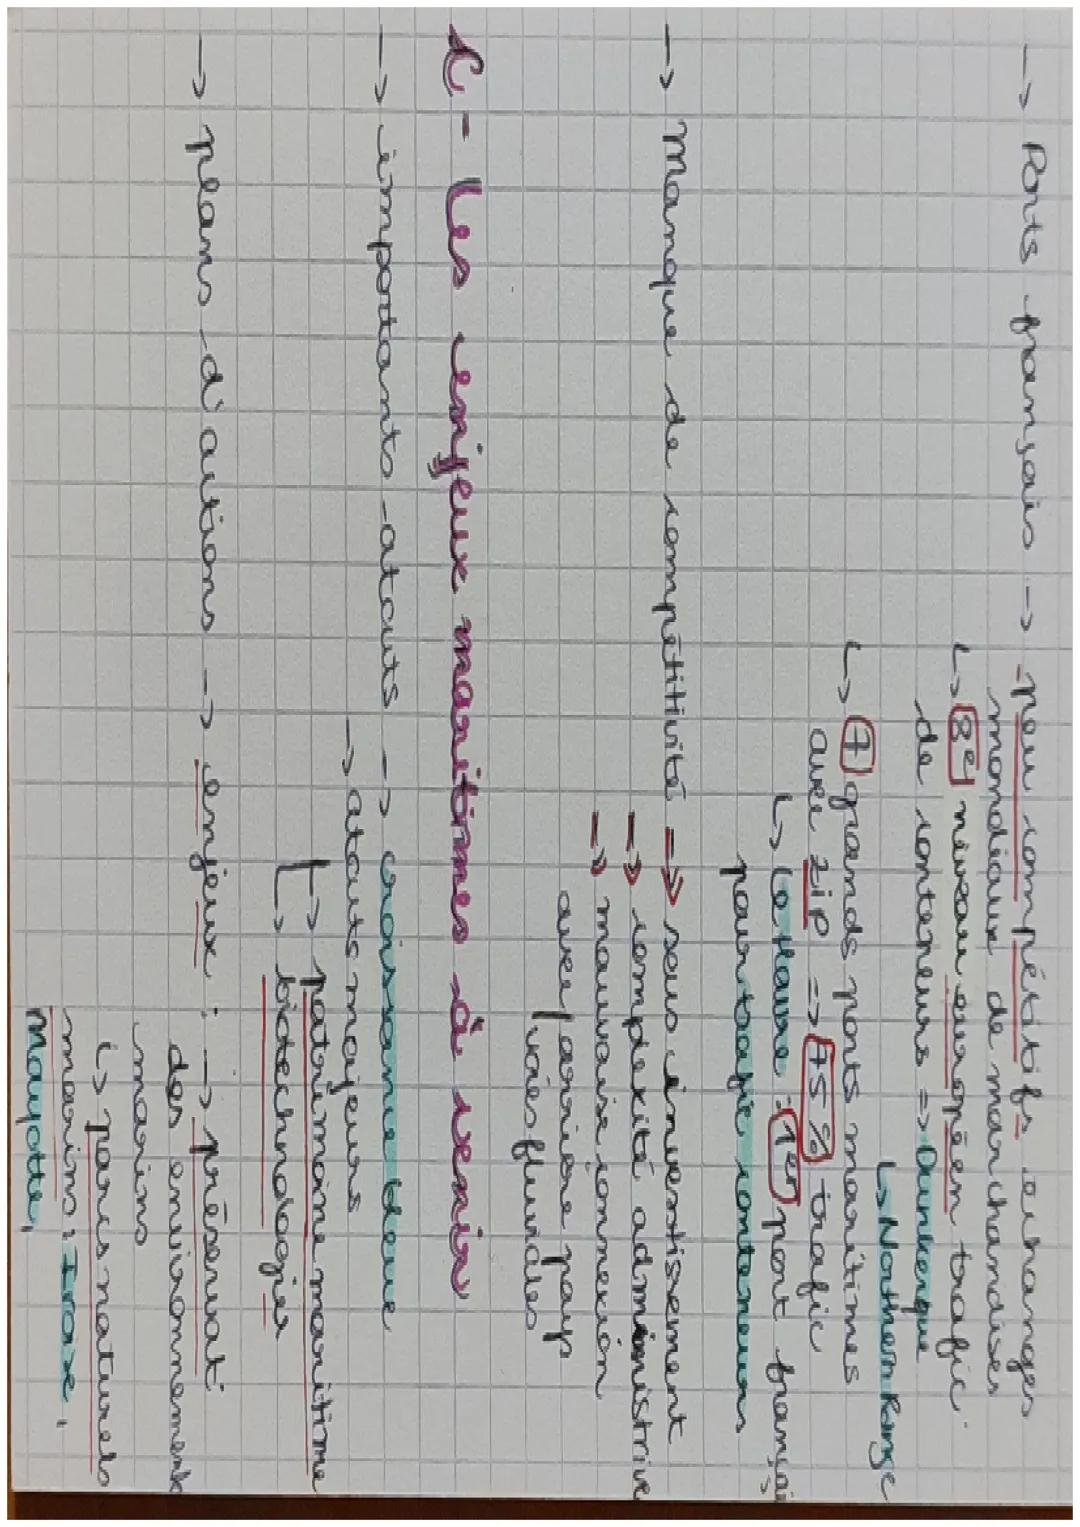 → Ports français → peu compétitifs echanges
mondiaux de marchandises
↳ 8e niveau européen trafic
de conteneurs => Dunkerque
↳ Northern Range
↳ 7 grands ports maritimes
avec zip => 75% trafic
↳ Le Havre : 1er port français
pour trafic conteneurs
→ Manque de compétitivité => sous investissement
=> compexité administrive
=> mauvaise connexion
avec arrière pays
/voies fluviales
C - Les enjeux maritimes à venir
→ importants atouts → croissance bleue
→ atouts majeurs
↳ patrimoine maritime
↳ biotechnologie
→ plans d'actions → enjeux : → préservat°
des environnements
marins
↳ parcs naturels
marins : Iroise,
Mayotte,